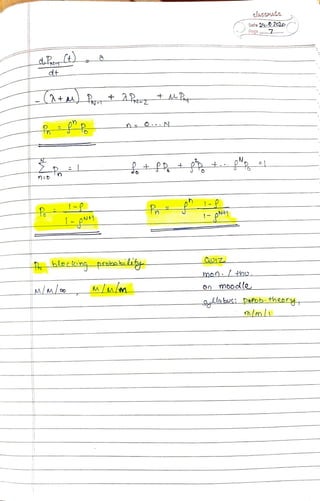 classmate
Date 24.8.2020
Page 7
dP_{N-1}(t) = 0
dt
-(λ+μ) P_{N-1} + λP_{N-2} + μP_N
P_n = ρ^n P_0    n = 0...N
∑_{n=0}^{N} P_n = 1    P_0 + ρP_0 + ρ^2P_0 + .. ρ^N P_0 = 1
P_0 = (1-ρ)/(1-ρ^{N+1})    P_n = ρ^n (1-ρ)/(1-ρ^{N+1})
P_N blocking probability
M/M/∞, M/M/m
QUIZ
mon. / thu.
on moodle
syllabus: prob. theory,
m/m/1